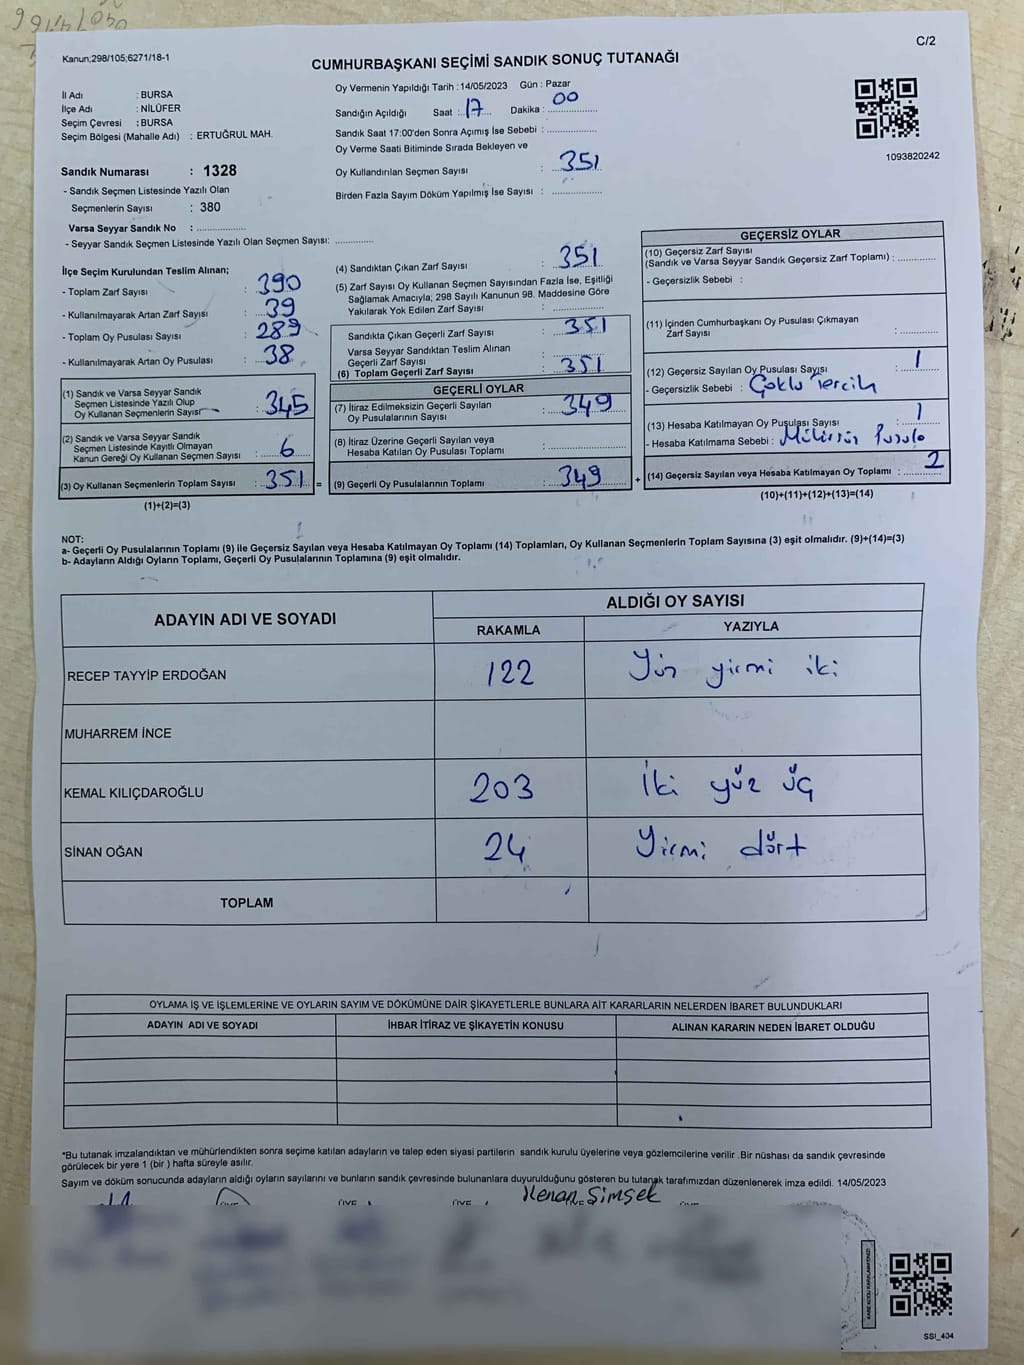 C/2
Kanun;298/105;6271/18-1
CUMHURBAŞKANI SEÇİMİ SANDIK SONUÇ TUTANAĞI
İl Adı : BURSA
İlçe Adı : NİLÜFER
Seçim Çevresi : BURSA
Seçim Bölgesi (Mahalle Adı) : ERTUĞRUL MAH.
Sandık Numarası : 1328
- Sandık Seçmen Listesinde Yazılı Olan
Seçmenlerin Sayısı : 380
Varsa Seyyar Sandık No : ................
- Seyyar Sandık Seçmen Listesinde Yazılı Olan Seçmen Sayısı: .............
Oy Vermenin Yapıldığı Tarih :14/05/2023 Gün : Pazar
Sandığın Açıldığı Saat : 17 Dakika : 00
Sandık Saat 17:00'den Sonra Açımış İse Sebebi : ................
Oy Verme Saati Bitiminde Sırada Bekleyen ve
Oy Kullandırılan Seçmen Sayısı : 351
Birden Fazla Sayım Döküm Yapılmış İse Sayısı : ................
1093820242
İlçe Seçim Kurulundan Teslim Alınan;
- Toplam Zarf Sayısı : 390
- Kullanılmayarak Artan Zarf Sayısı : 39
- Toplam Oy Pusulası Sayısı : 289
- Kullanılmayarak Artan Oy Pusulası : 38
(1) Sandık ve Varsa Seyyar Sandık
Seçmen Listesinde Yazılı Olup
Oy Kullanan Seçmenlerin Sayısı : 345
(2) Sandık ve Varsa Seyyar Sandık
Seçmen Listesinde Kayıtlı Olmayan
Kanun Gereği Oy Kullanan Seçmen Sayısı : 6
(3) Oy Kullanan Seçmenlerin Toplam Sayısı : 351 =
(1)+(2)=(3)
(4) Sandıktan Çıkan Zarf Sayısı : 351
(5) Zarf Sayısı Oy Kullanan Seçmen Sayısından Fazla İse, Eşitliği
Sağlamak Amacıyla; 298 Sayılı Kanunun 98. Maddesine Göre
Yakılarak Yok Edilen Zarf Sayısı : ................
Sandıkta Çıkan Geçerli Zarf Sayısı : 351
Varsa Seyyar Sandıktan Teslim Alınan
Geçerli Zarf Sayısı : ................
(6) Toplam Geçerli Zarf Sayısı : 351
GEÇERLİ OYLAR
(7) İtiraz Edilmeksizin Geçerli Sayılan
Oy Pusulalarının Sayısı : 349
(8) İtiraz Üzerine Geçerli Sayılan veya
Hesaba Katılan Oy Pusulaları Toplamı : ................
(9) Geçerli Oy Pusulalarının Toplamı : 349 +
GEÇERSİZ OYLAR
(10) Geçersiz Zarf Sayısı
(Sandık ve Varsa Seyyar Sandık Geçersiz Zarf Toplamı) : ............
- Geçersizlik Sebebi :
(11) İçinden Cumhurbaşkanı Oy Pusulası Çıkmayan
Zarf Sayısı : ............
(12) Geçersiz Sayılan Oy Pusulası Sayısı : 1
- Geçersizlik Sebebi : Çoklu Tercih
(13) Hesaba Katılmayan Oy Pusulası Sayısı : 1
- Hesaba Katılmama Sebebi : Mühürsüz Pusula
(14) Geçersiz Sayılan veya Hesaba Katılmayan Oy Toplamı : 2
(10)+(11)+(12)+(13)=(14)
NOT:
a- Geçerli Oy Pusulalarının Toplamı (9) ile Geçersiz Sayılan veya Hesaba Katılmayan Oy Toplamı (14) Toplamları, Oy Kullanan Seçmenlerin Toplam Sayısına (3) eşit olmalıdır. (9)+(14)=(3)
b- Adayların Aldığı Oyların Toplamı, Geçerli Oy Pusulalarının Toplamına (9) eşit olmalıdır.
ADAYIN ADI VE SOYADI
ALDIĞI OY SAYISI
RAKAMLA YAZIYLA
RECEP TAYYİP ERDOĞAN 122 Yüz yirmi iki
MUHARREM İNCE
KEMAL KILIÇDAROĞLU 203 İki yüz üç
SİNAN OĞAN 24 Yirmi dört
TOPLAM
OYLAMA İŞ VE İŞLEMLERİNE VE OYLARIN SAYIM VE DÖKÜMÜNE DAİR ŞİKAYETLERLE BUNLARA AİT KARARLARIN NELERDEN İBARET BULUNDUKLARI
ADAYIN ADI VE SOYADI İHBAR İTİRAZ VE ŞİKAYETİN KONUSU ALINAN KARARIN NEDEN İBARET OLDUĞU
*Bu tutanak imzalandıktan ve mühürlendikten sonra seçime katılan adayların ve talep eden siyasi partilerin sandık kurulu üyelerine veya gözlemcilerine verilir .Bir nüshası da sandık çevresinde
görülecek bir yere 1 (bir ) hafta süreyle asılır.
Sayım ve döküm sonucunda adayların aldığı oyların sayılarını ve bunların sandık çevresinde bulunanlara duyurulduğunu gösteren bu tutanak tarafımızdan düzenlenerek imza edildi. 14/05/2023
Kenan Şimşek
SSI_404